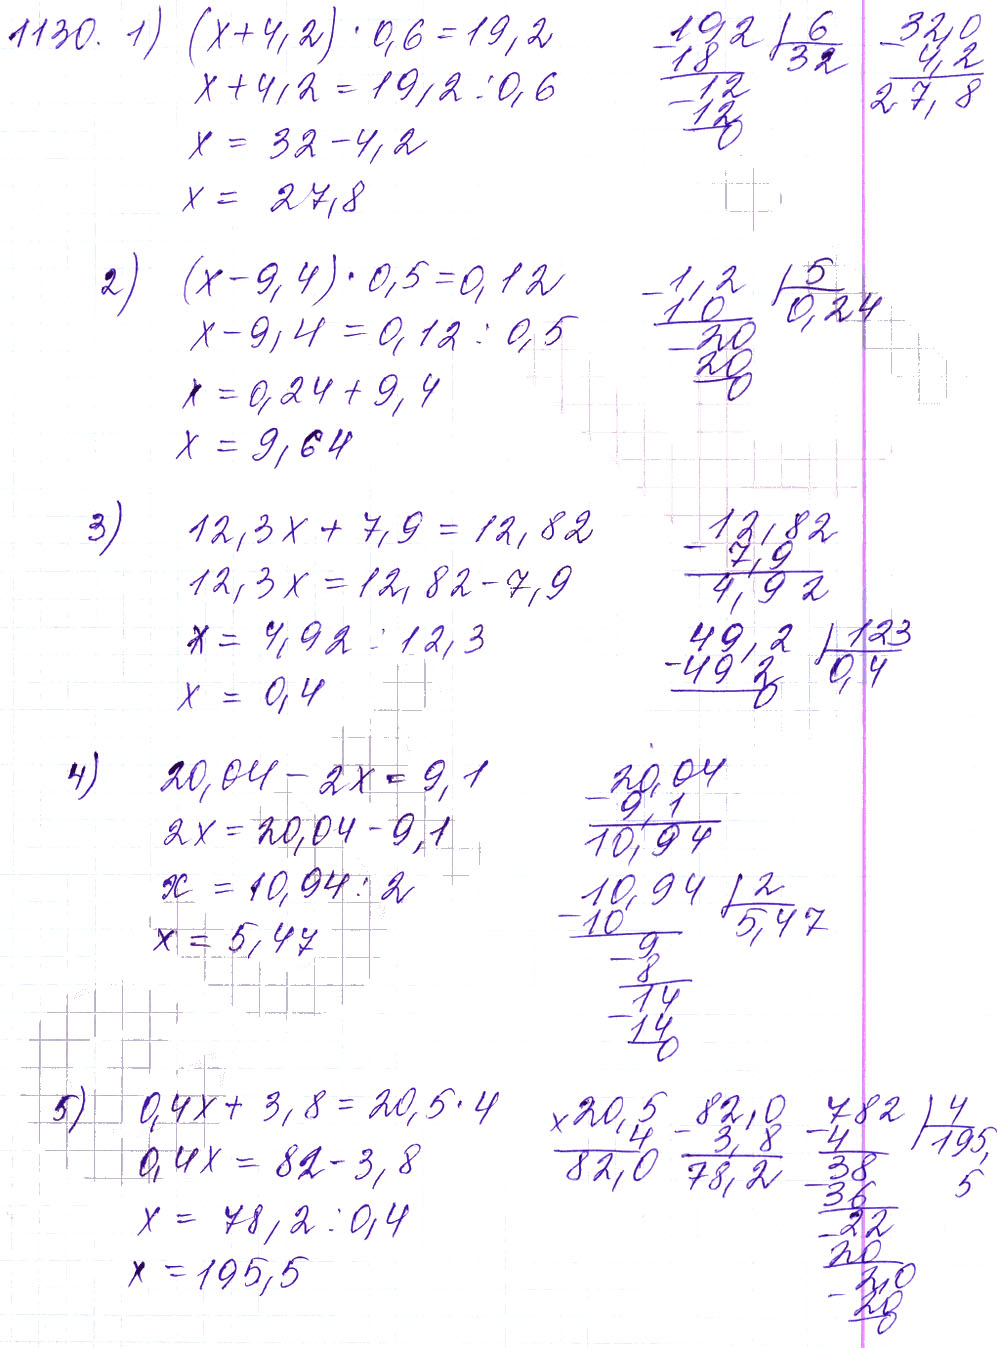 1130. 1) (x+4,2)·0,6=19,2
x+4,2=19,2:0,6
x = 32-4,2
x = 27,8
-19,2 | 6
18 32
-12
-12
0
-32,0
4,2
27,8
2) (x-9,4)·0,5=0,12
x-9,4=0,12:0,5
x=0,24+9,4
x=9,64
-1,2 | 5
10 0,24
-20
20
0
3) 12,3x+7,9=12,82
12,3x=12,82-7,9
x=4,92:12,3
x=0,4
-12,82
7,9
4,92
49,2 | 123
-49 2 0,4
0
4) 20,04-2x=9,1
2x=20,04-9,1
x=10,94:2
x=5,47
20,04
-9,1
10,94
10,94 | 2
-10 5,47
9
-8
14
-14
0
5) 0,4x+3,8=20,5·4
0,4x=82-3,8
x=78,2:0,4
x=195,5
x20,5
4
82,0
-82,0
3,8
78,2
-782 | 4
4 195,
38 5
-36
-22
20
2,0
-20
0